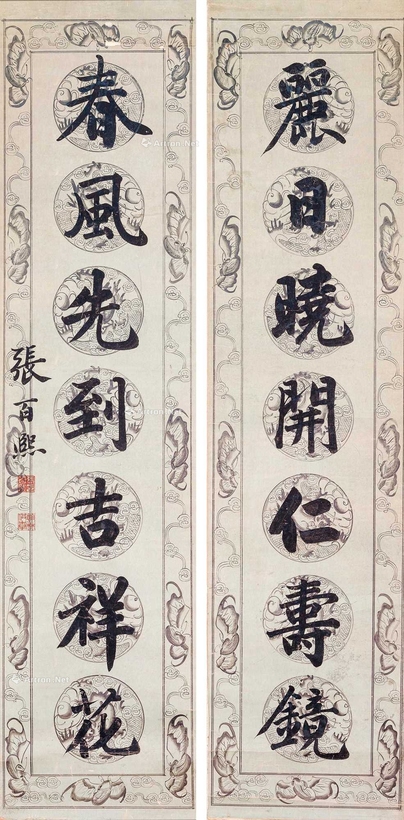 麗日曉開仁壽鏡
春風先到吉祥花
張百熙